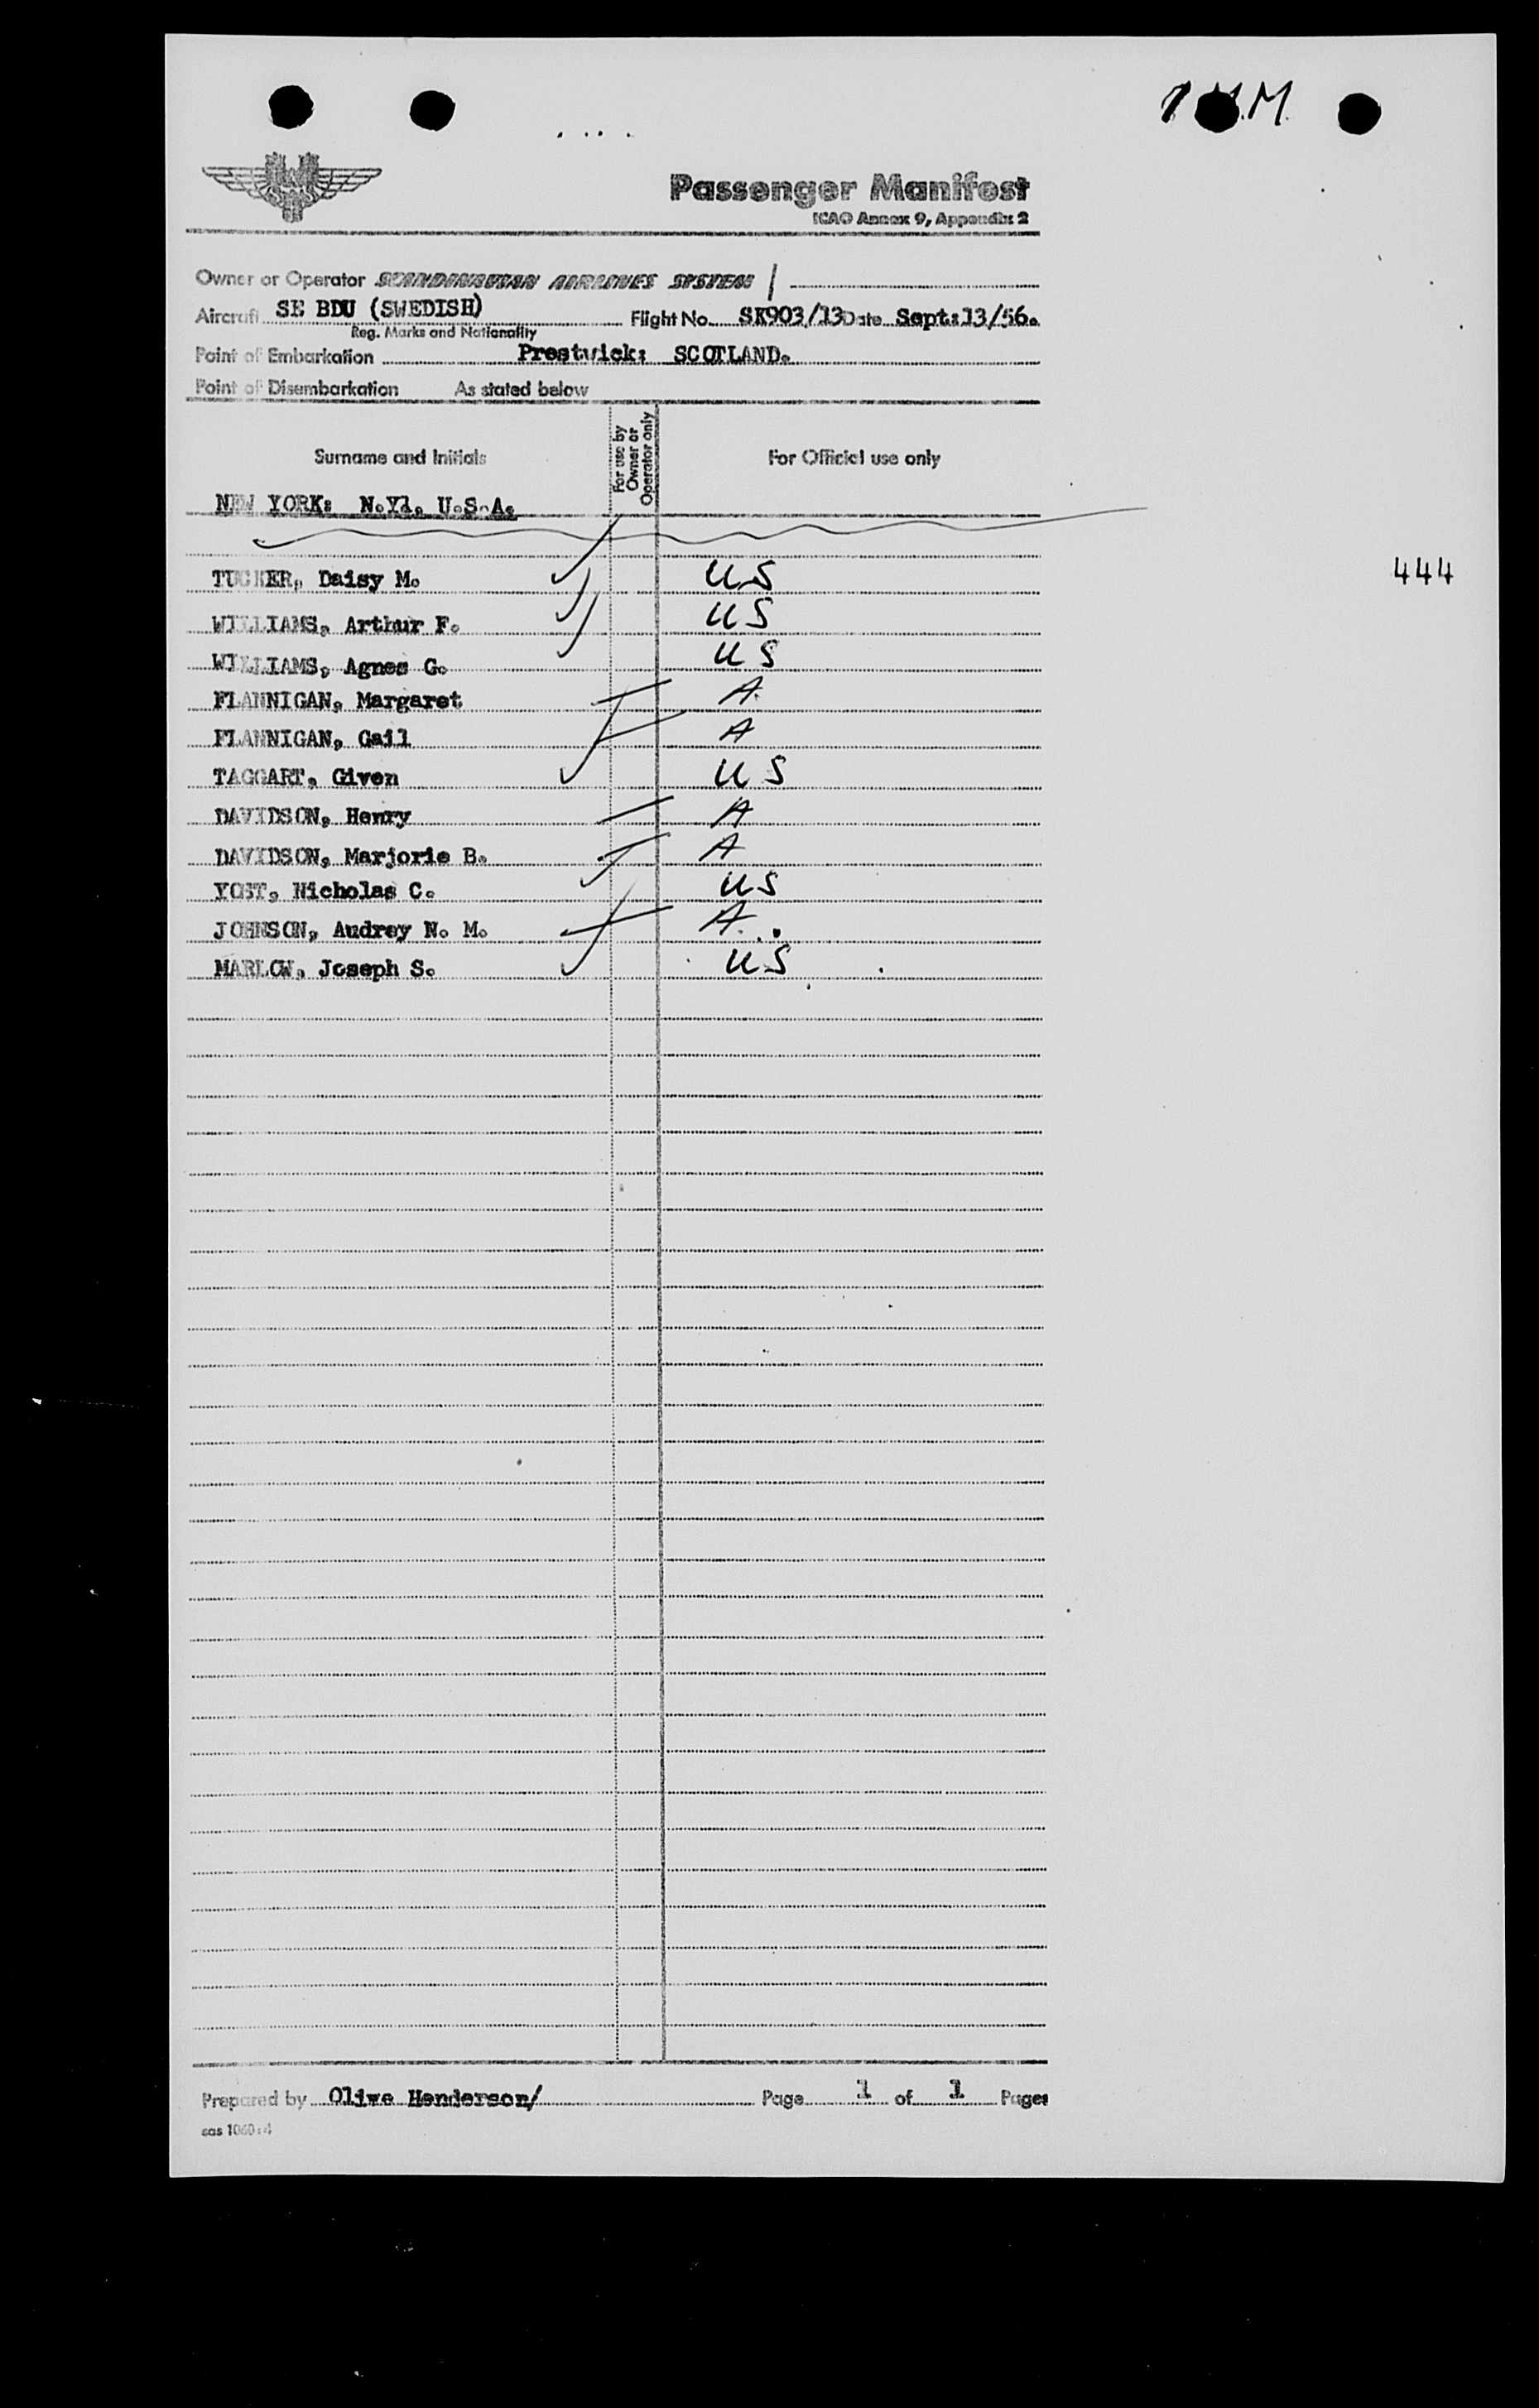 M.
SAS
Passenger Manifest
ICAO Annex 9, Appendix 2
Owner or Operator SCANDINAVIAN AIRLINES SYSTEM /
Aircraft SE BDU (SWEDISH) Flight No. SK903/13 Date Sept:13/56.
Reg. Marks and Nationality
Point of Embarkation Prestwick: SCOTLAND.
Point of Disembarkation As stated below
Surname and Initials For use by Owner or Operator only For Official use only
NEW YORK: N.Y1. U.S.A.
TUCKER, Daisy M. US 444
WILLIAMS, Arthur F. US
WILLIAMS, Agnes G. US
FLANNIGAN, Margaret A
FLANNIGAN, Gail A
TAGGART, Given US
DAVIDSON, Henry A
DAVIDSON, Marjorie B. A
YOST, Nicholas C. US
JOHNSON, Audrey N. M. A
MARLOW, Joseph S. US
Prepared by Olive Henderson/ Page 1 of 1 Pages
sas 1060:4